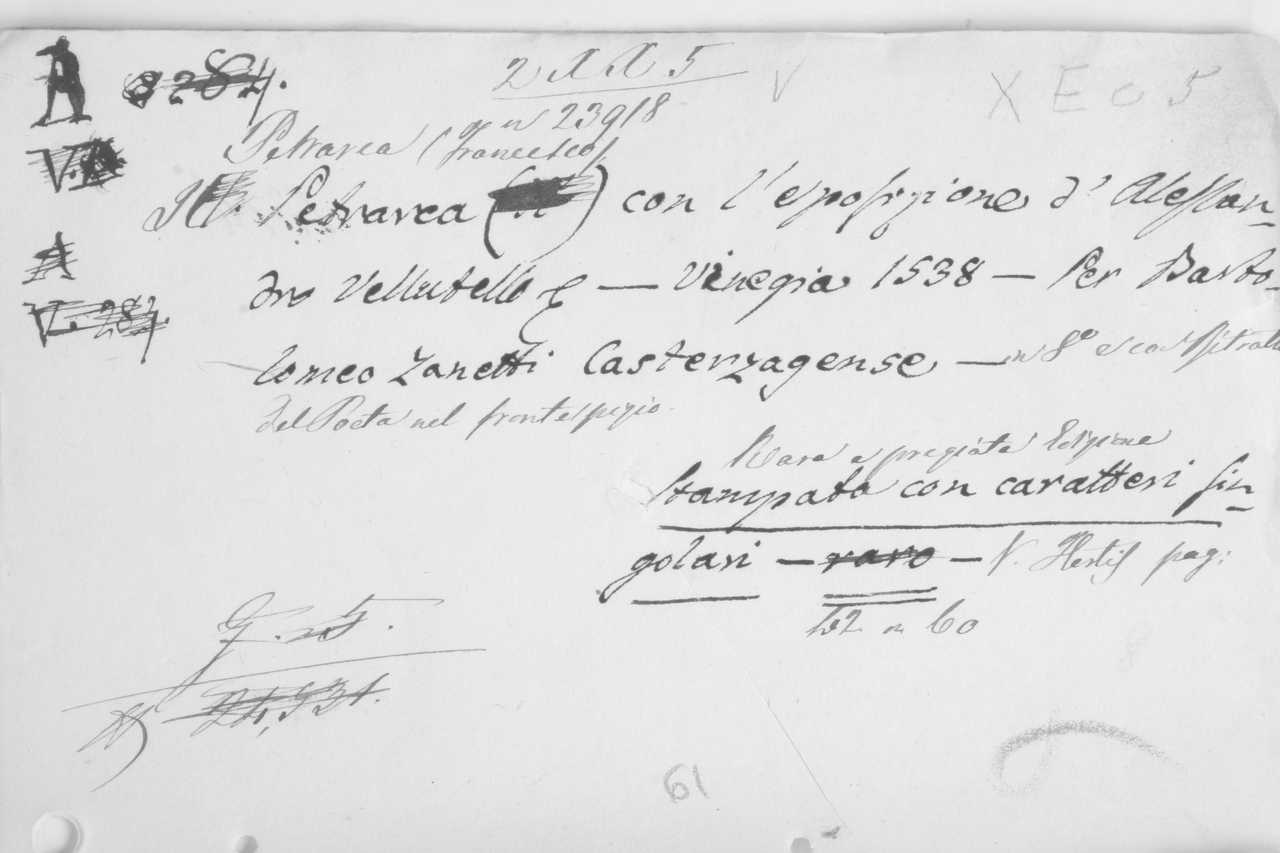 8284.
2 X X 5
X E O 5
n 23918
V.A.
Petrarca (Francesco)
Il Petrarca ( ) con l'esposizione d'Alessan-
A
dro Vellutello — Vinegia 1538 — Per Barto-
V. 284.
lomeo Zanetti Casterzagense — in 8º e con Ritratto
del Poeta nel frontespizio.
Rara e pregiata Edizione
Stampata con caratteri sin-
golari — raro — V. pag:
n 60
61